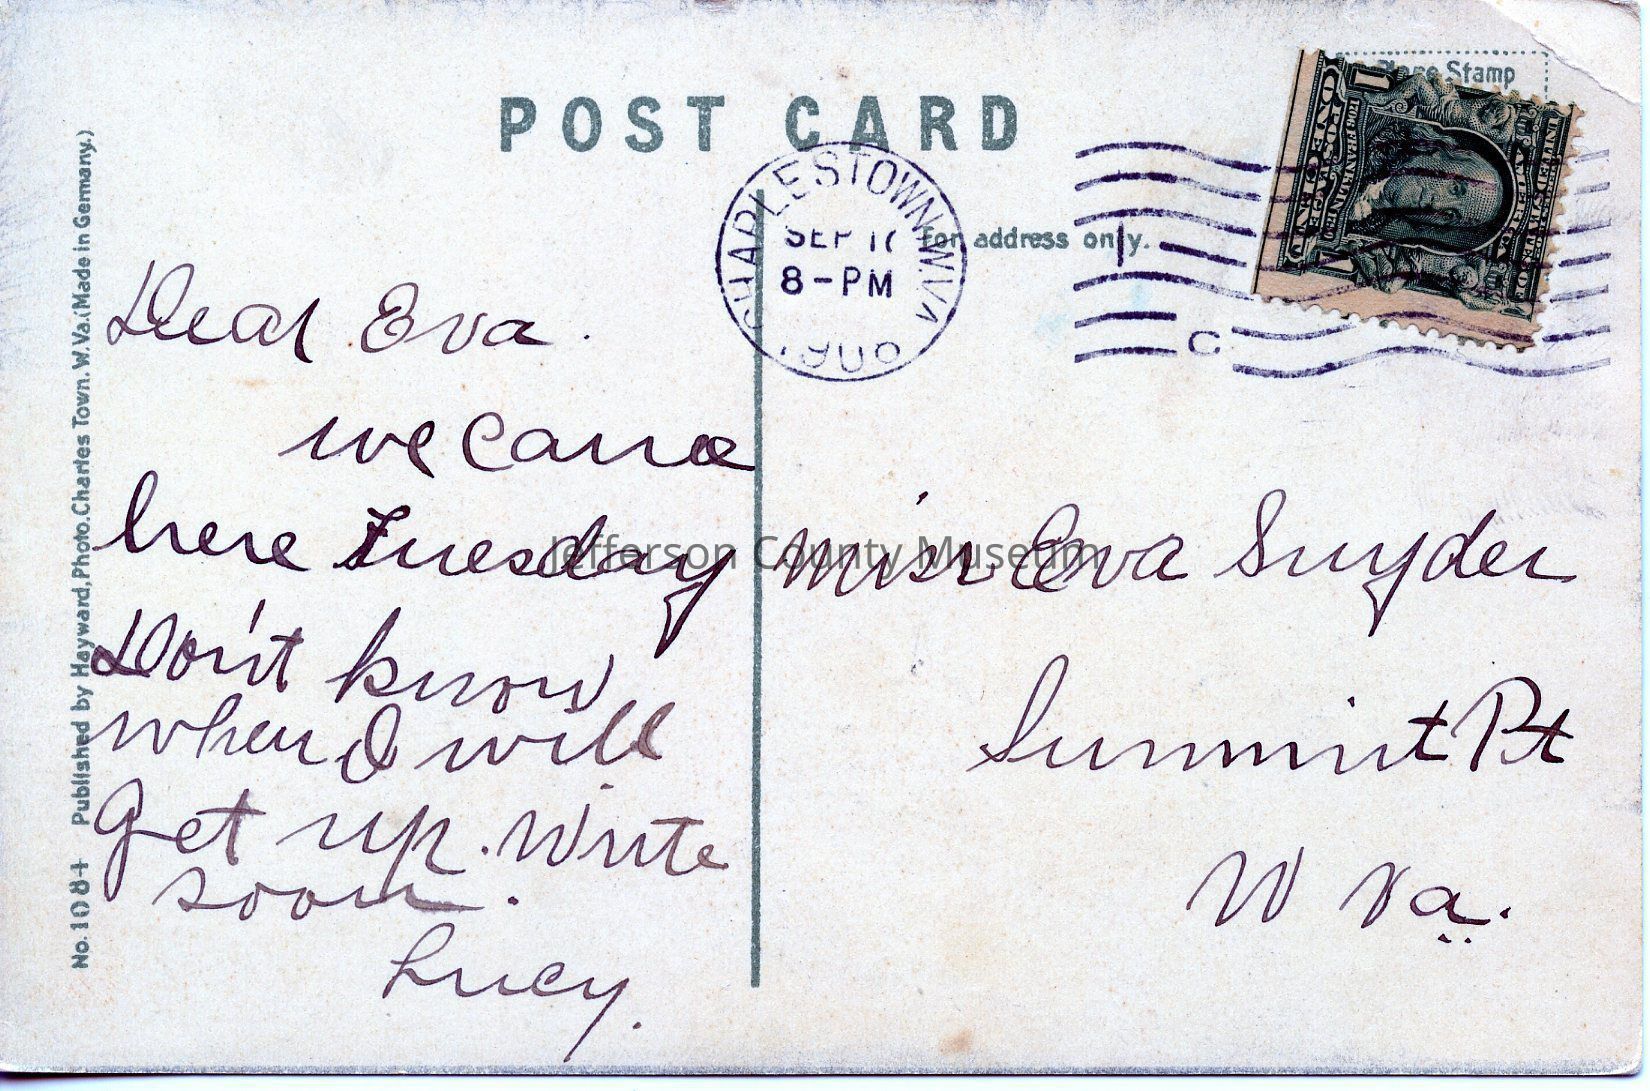 POST CARD
Place Stamp
CHARLESTOWN W.VA.
SEP 17
8-PM
for address only.
C
ONE CENT
1
Dear Eva.
we came
here Tuesday
Don't know
when I will
get up. Write
soon.
Lucy.
Miss Eva Snyder
Summit Pt
W Va.
No. 1084 Published by Hayward, Photo, Charles Town, W. Va. (Made in Germany.)
Jefferson County Museum